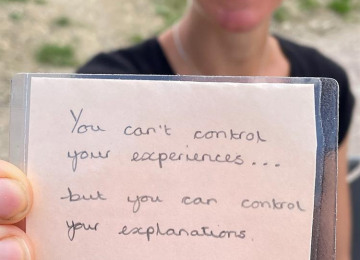 You can't control
your experiences...
but you can control
your explanations.